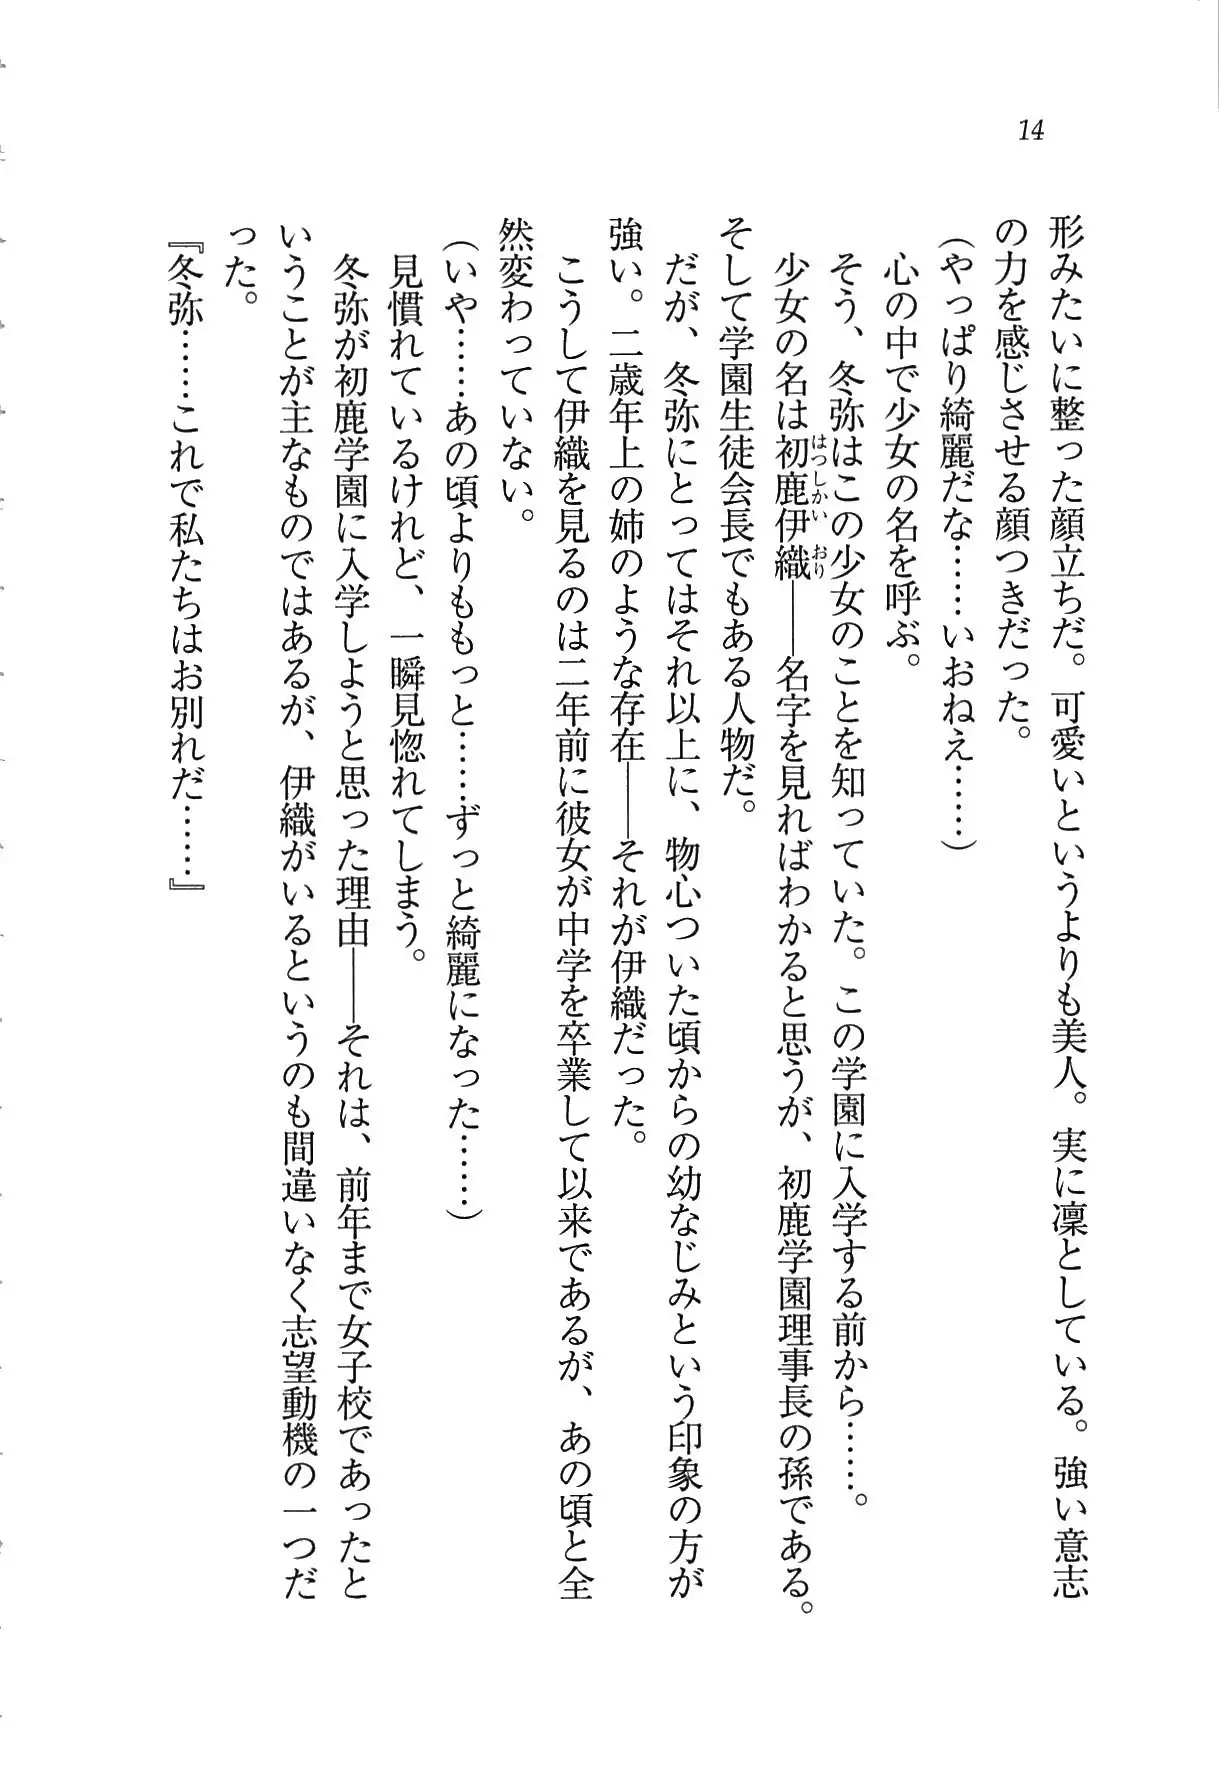 14
形みたいに整った顔立ちだ。可愛いというよりも美人。実に凛としている。強い意志
の力を感じさせる顔つきだった。
（やっぱり綺麗だな……いおねえ……）
心の中で少女の名を呼ぶ。
そう、冬弥はこの少女のことを知っていた。この学園に入学する前から……。
少女の名は初鹿伊織――名字を見ればわかると思うが、初鹿学園理事長の孫である。
はつしかい おり
そして学園生徒会長でもある人物だ。
だが、冬弥にとってはそれ以上に、物心ついた頃からの幼なじみという印象の方が
強い。二歳年上の姉のような存在――それが伊織だった。
こうして伊織を見るのは二年前に彼女が中学を卒業して以来であるが、あの頃と全
然変わっていない。
（いや……あの頃よりももっと……ずっと綺麗になった……）
見慣れているけれど、一瞬見惚れてしまう。
冬弥が初鹿学園に入学しようと思った理由――それは、前年まで女子校であったと
いうことが主なものではあるが、伊織がいるというのも間違いなく志望動機の一つだ
った。
『冬弥……これで私たちはお別れだ……』